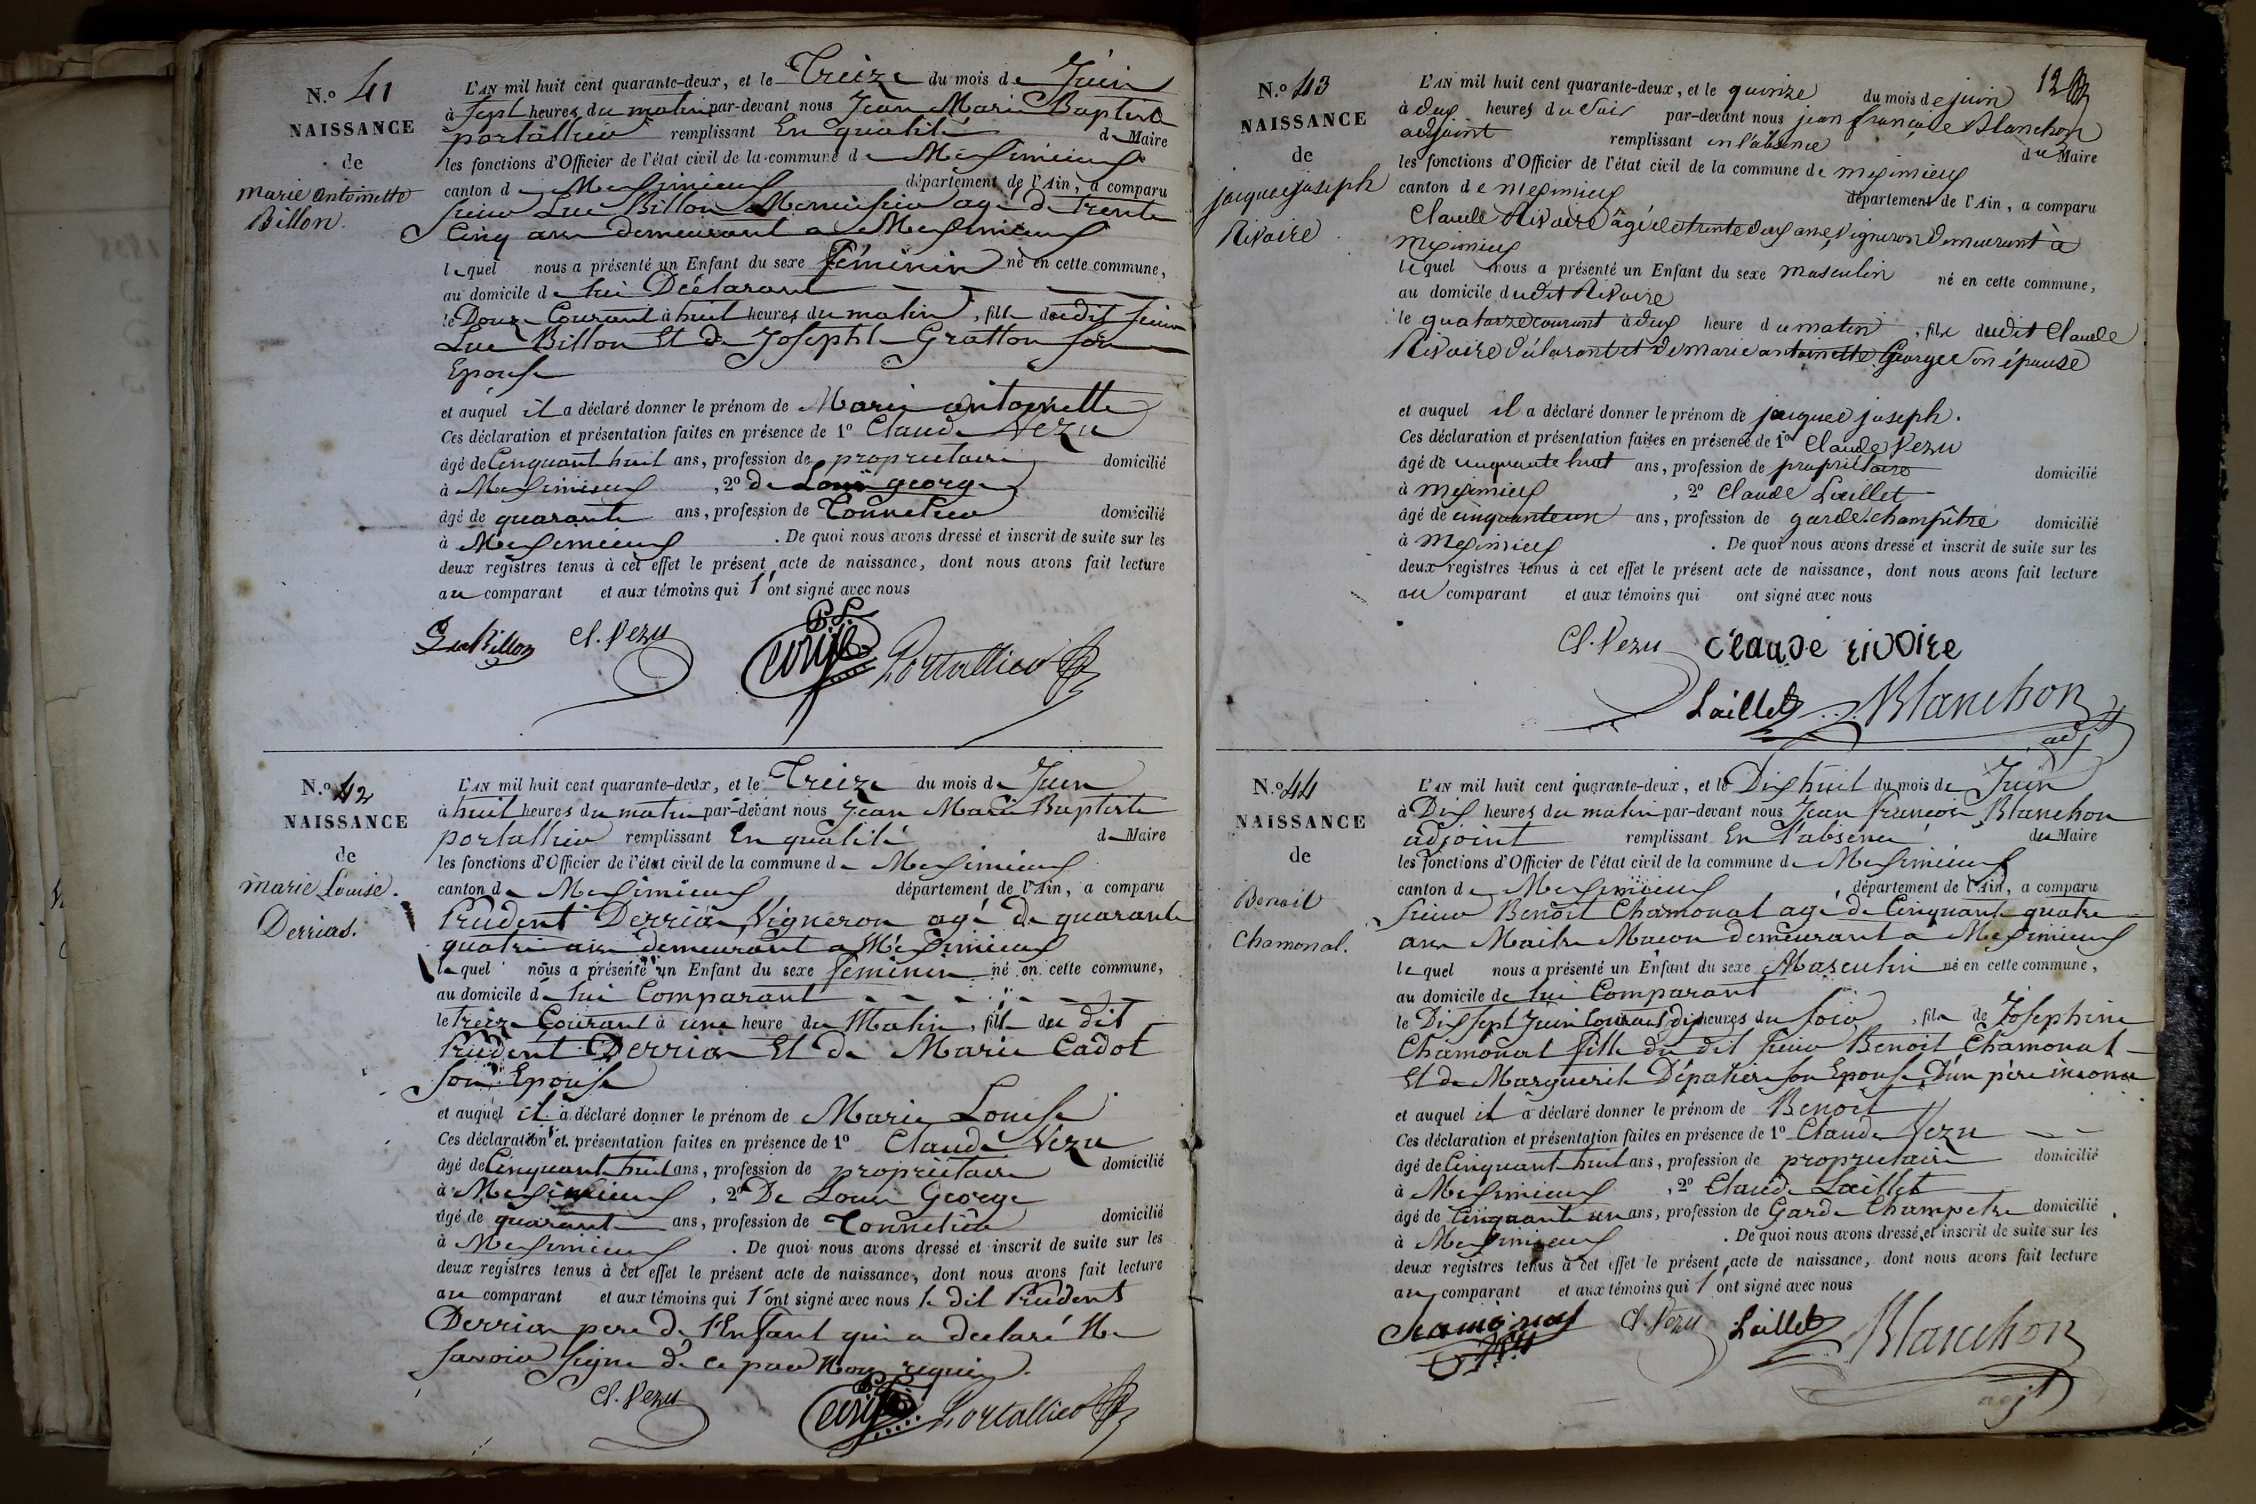 N.º 41
NAISSANCE
de
Marie Antoinette
Billon.
L'AN mil huit cent quarante-deux, et le Treize du mois de Juin
à Sept heures du matin par-devant nous Jean Marie Baptiste
portallier remplissant En qualité de Maire
les fonctions d'Officier de l'état civil de la commune de Meximieux
canton de Meximieux département de l'Ain, a comparu
Sieur Luc Billon Menuisier agé de trente
Cinq ans demeurant a Meximieux
lequel nous a présenté un Enfant du sexe féminin né en cette commune,
au domicile de lui Déclarant
le Douze Courant à huit heures du matin, fille du dit Sieur
Luc Billon Et de Josephte Gratton son
Epouse
et auquel il a déclaré donner le prénom de Marie antoinette
Ces déclaration et présentation faites en présence de 1º Claude Vezu
âgé de Cinquante huit ans, profession de propriétaire domicilié
à Meximieux, 2º de Louis george
âgé de quarante ans, profession de Tonnelier domicilié
à Meximieux. De quoi nous avons dressé et inscrit de suite sur les
deux registres tenus à cet effet le présent acte de naissance, dont nous avons fait lecture
au comparant et aux témoins qui l'ont signé avec nous
Luc Billon Cl. Vezu Portallier
N.º 42
NAISSANCE
de
Marie Louise.
Derrias.
L'AN mil huit cent quarante-deux, et le Treize du mois de Juin
à huit heures du matin par-devant nous Jean Marie Baptiste
portallier remplissant En qualité de Maire
les fonctions d'Officier de l'état civil de la commune de Meximieux
canton de Meximieux département de l'Ain, a comparu
Prudent Derrias Vigneron agé de quarante
quatre ans demeurant a Meximieux
lequel nous a présenté un Enfant du sexe féminin né en cette commune,
au domicile de lui Comparant
le treize Courant à une heure du Matin, fille du dit
Prudent Derrias Et de Marie Cadot
son Epouse
et auquel il a déclaré donner le prénom de Marie Louise
Ces déclaration et présentation faites en présence de 1º Claude Vezu
âgé de Cinquante huit ans, profession de propriétaire domicilié
à Meximieux, 2º De Louis George
âgé de quarante ans, profession de Tonnelier domicilié
à Meximieux. De quoi nous avons dressé et inscrit de suite sur les
deux registres tenus à cet effet le présent acte de naissance, dont nous avons fait lecture
au comparant et aux témoins qui l'ont signé avec nous le dit Prudent
Derrias pere de l'Enfant qui a declaré Ne
savoir signe de ce par Nous requis.
Cl. Vezu Portallier
12
N.º 43
NAISSANCE
de
jacques joseph
Rivoire
L'AN mil huit cent quarante-deux, et le quinze du mois de juin
à deux heures du soir par-devant nous jean françois Blanchon
adjoint remplissant en l'absence du Maire
les fonctions d'Officier de l'état civil de la commune de meximieux
canton de meximieux département de l'Ain, a comparu
Claude Rivoire âgé de trente deux ans vigneron demeurant à
meximieux
lequel nous a présenté un Enfant du sexe masculin né en cette commune,
au domicile dudit Rivoire
le quatorze courant à deux heure du matin, fils dudit Claude
Rivoire déclarant et de marie antoinette George son épouse
et auquel il a déclaré donner le prénom de jacques joseph.
Ces déclaration et présentation faites en présence de 1º Claude Vezu
âgé de cinquante huit ans, profession de propriétaire domicilié
à meximieux, 2º Claude Laillet
âgé de cinquante un ans, profession de garde champêtre domicilié
à meximieux. De quoi nous avons dressé et inscrit de suite sur les
deux registres tenus à cet effet le présent acte de naissance, dont nous avons fait lecture
au comparant et aux témoins qui ont signé avec nous
Cl. Vezu claude rivoire
Laillet Blanchon
adj
N.º 44
NAISSANCE
de
Benoit
Chamonal.
L'AN mil huit cent quarante-deux, et le Dix huit du mois de Juin
à Dix heures du matin par-devant nous Jean francois Blanchon
adjoint remplissant En l'absence du Maire
les fonctions d'Officier de l'état civil de la commune de Meximieux
canton de Meximieux, département de l'Ain, a comparu
Sieur Benoit Chamonal agé de Cinquante quatre
ans Maitre Macon demeurant a Meximieux
lequel nous a présenté un Enfant du sexe Masculin né en cette commune,
au domicile de lui Comparant
le Dix sept Juin Courant à dix heures du soir, fils de Josephine
Chamonal fille du dit Sieur Benoit Chamonal
Et de Marguerite Dépalier son Epouse, D'un père inconu
et auquel il a déclaré donner le prénom de Benoit
Ces déclaration et présentation faites en présence de 1º Claude Vezu
âgé de Cinquante huit ans, profession de propriétaire domicilié
à Meximieux, 2º Claude Laillet
âgé de Cinquante un ans, profession de Garde Champetre domicilié
à Meximieux. De quoi nous avons dressé et inscrit de suite sur les
deux registres tenus à cet effet le présent acte de naissance, dont nous avons fait lecture
au comparant et aux témoins qui l'ont signé avec nous
Cl. Vezu Laillet Blanchon
adjt